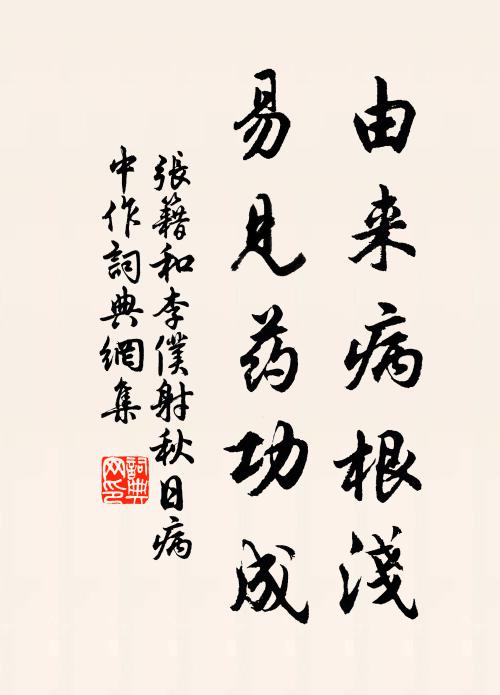 由来病根淺
易见药功成
張籍和李僕射秋日病
中作詞典網集
詞典網印